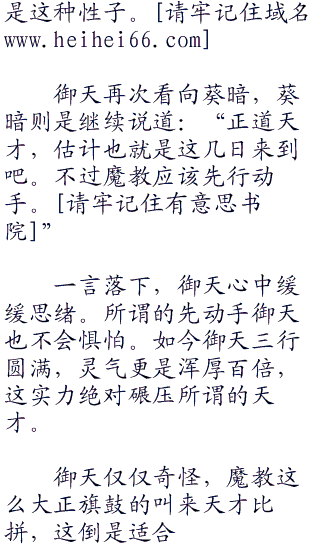 是这种性子。[请牢记住域名
www.heihei66.com]
御天再次看向葵暗，葵
暗则是继续说道：“正道天
才，估计也就是这几日来到
吧。不过魔教应该先行动
手。[请牢记住有意思书
院]”
一言落下，御天心中缓
缓思绪。所谓的先动手御天
也不会惧怕。如今御天三行
圆满，灵气更是浑厚百倍，
这实力绝对碾压所谓的天
才。
御天仅仅奇怪，魔教这
么大正旗鼓的叫来天才比
拼，这倒是适合